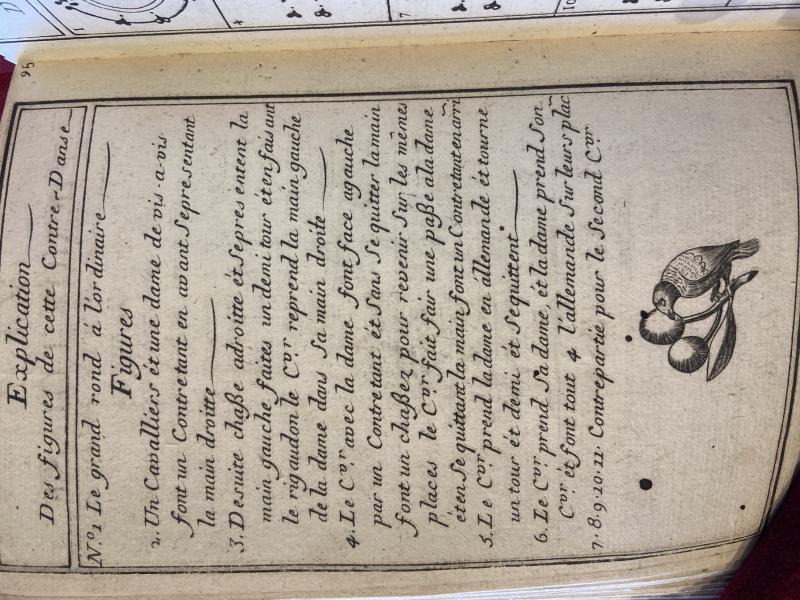 95
Explication
Des figures de cette Contre-Danse
N.º1 Le grand rond á l'ordinaire
Figures
2. Un Cavalliers ét une dame de vis-a-vis
font un Contretant en avant Se presentant
la main droitte
3. De suite chaße adroitte ét Se pres entent la
main gauche faites un demi tour ét en faisant
le rigaudon le C.ver reprend la main gauche
de la dame dans Sa main droite
4. Le C.ver avec la dame font face a gauche
par un Contretant et Sans Se quitter la main
font un chaßez pour revenir Sur les mêmes
places le C.ver fait fair une paße a la dame
ét en Se quittant la main font un Contretant en arri
5. Le C.ver prend la dame en allemande ét tourne
un tour ét demi ét Se quittent
6. Le C.ver prend Sa dame, ét la dame prend Son
C.ver ét font tout 4 l'allemande Sur leurs plac
7. 8. 9. 10. 11. Contrepartie pour le Second C.ver
1
4
7
10